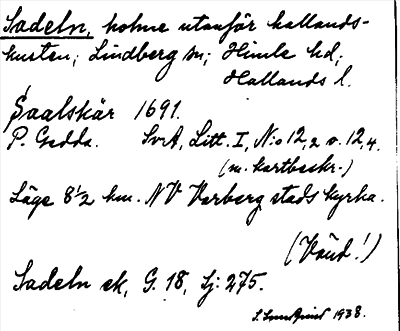 Sadeln, holme utanför hallands-
kusten; Lindberg sn; Himle hd;
Hallands l.
Saalskär 1691.
P. Gedda. SvA, Litt. I, N:o 12,2 o. 12,4.
(m. kartbeskr.)
Läge 8 1/2 km. NV Varberg stads kyrka.
(Vänd!)
Sadeln ek, G. 18, Sj: 275.
1938.